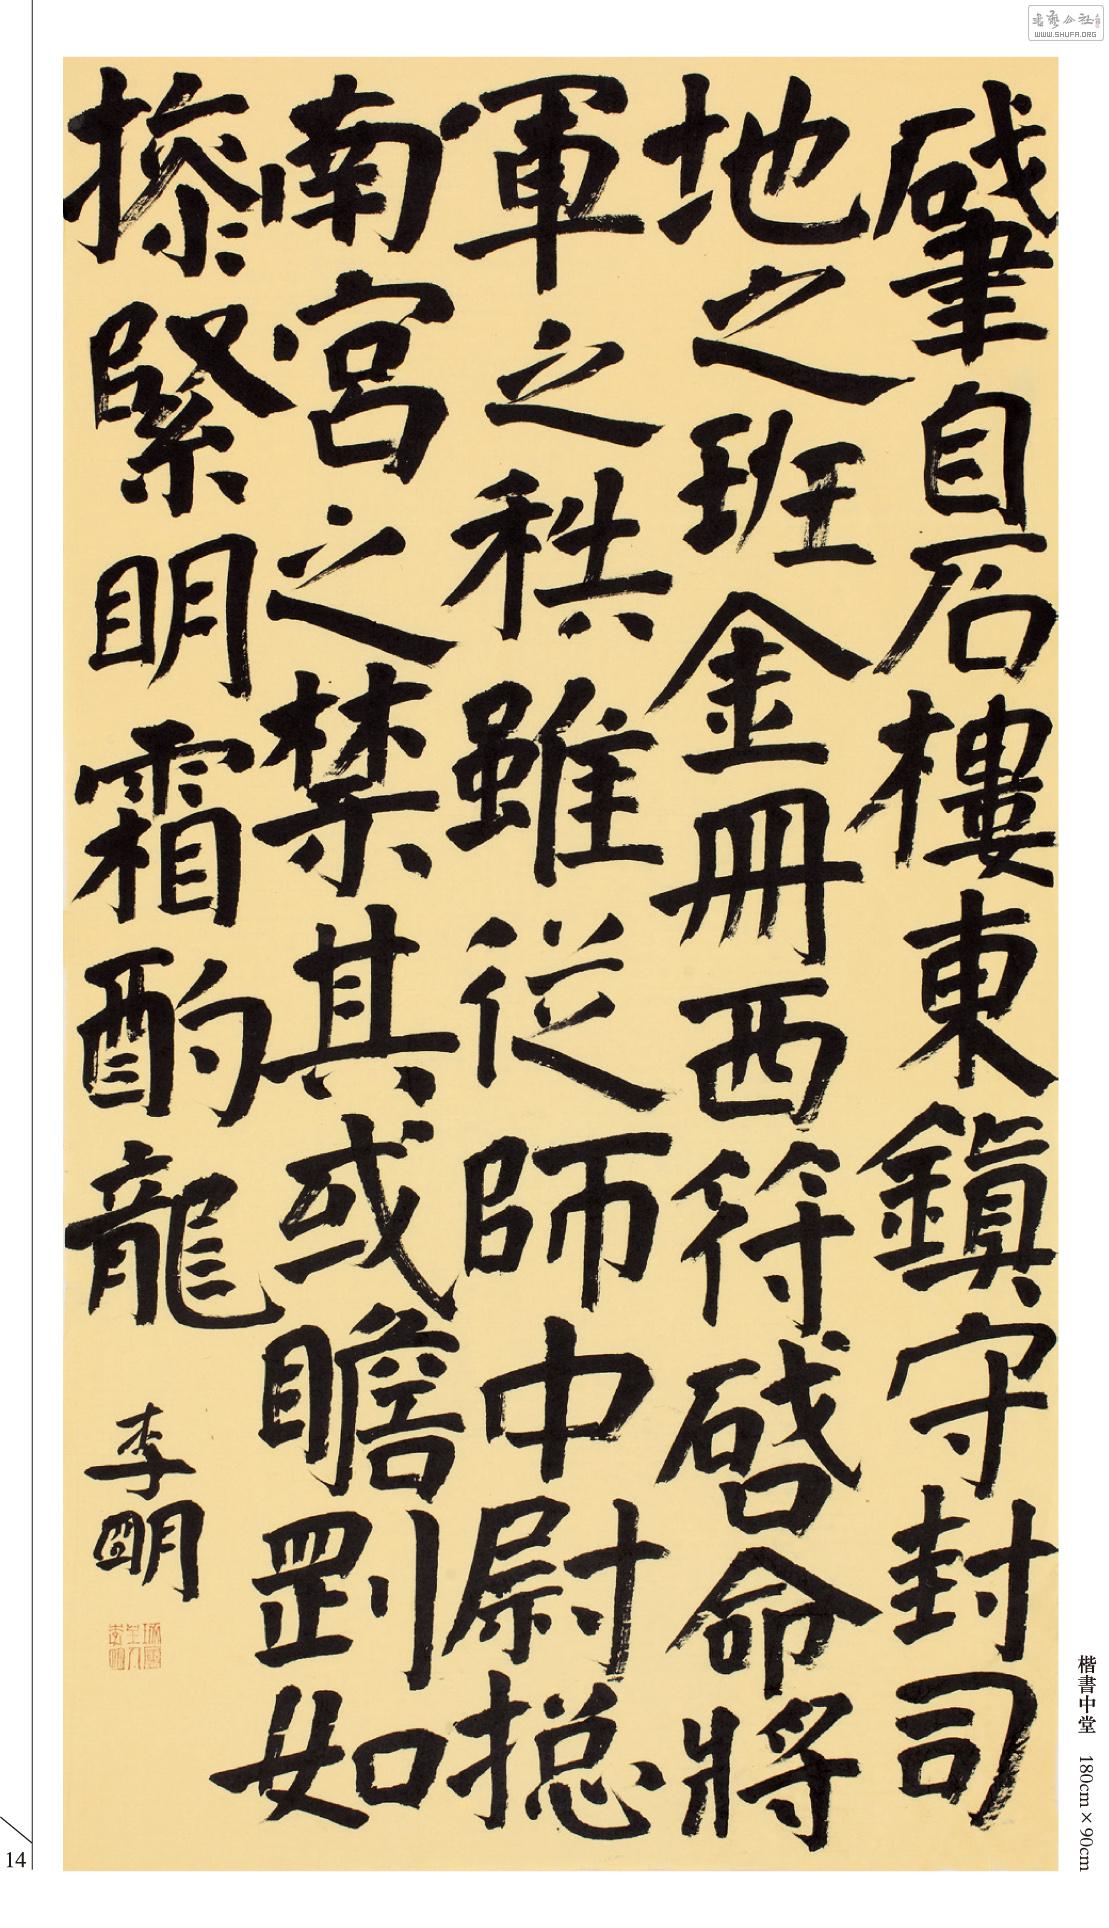 肈自石樓東鎮守封司
地之班金冊西符啓命將
軍之秩雖從師中尉捴
南宮之禁其或瞻罡刂如
㨆緊明霜酌龍
李明
楷書中堂 180cm×90cm
14
WWW.SHUFA.ORG